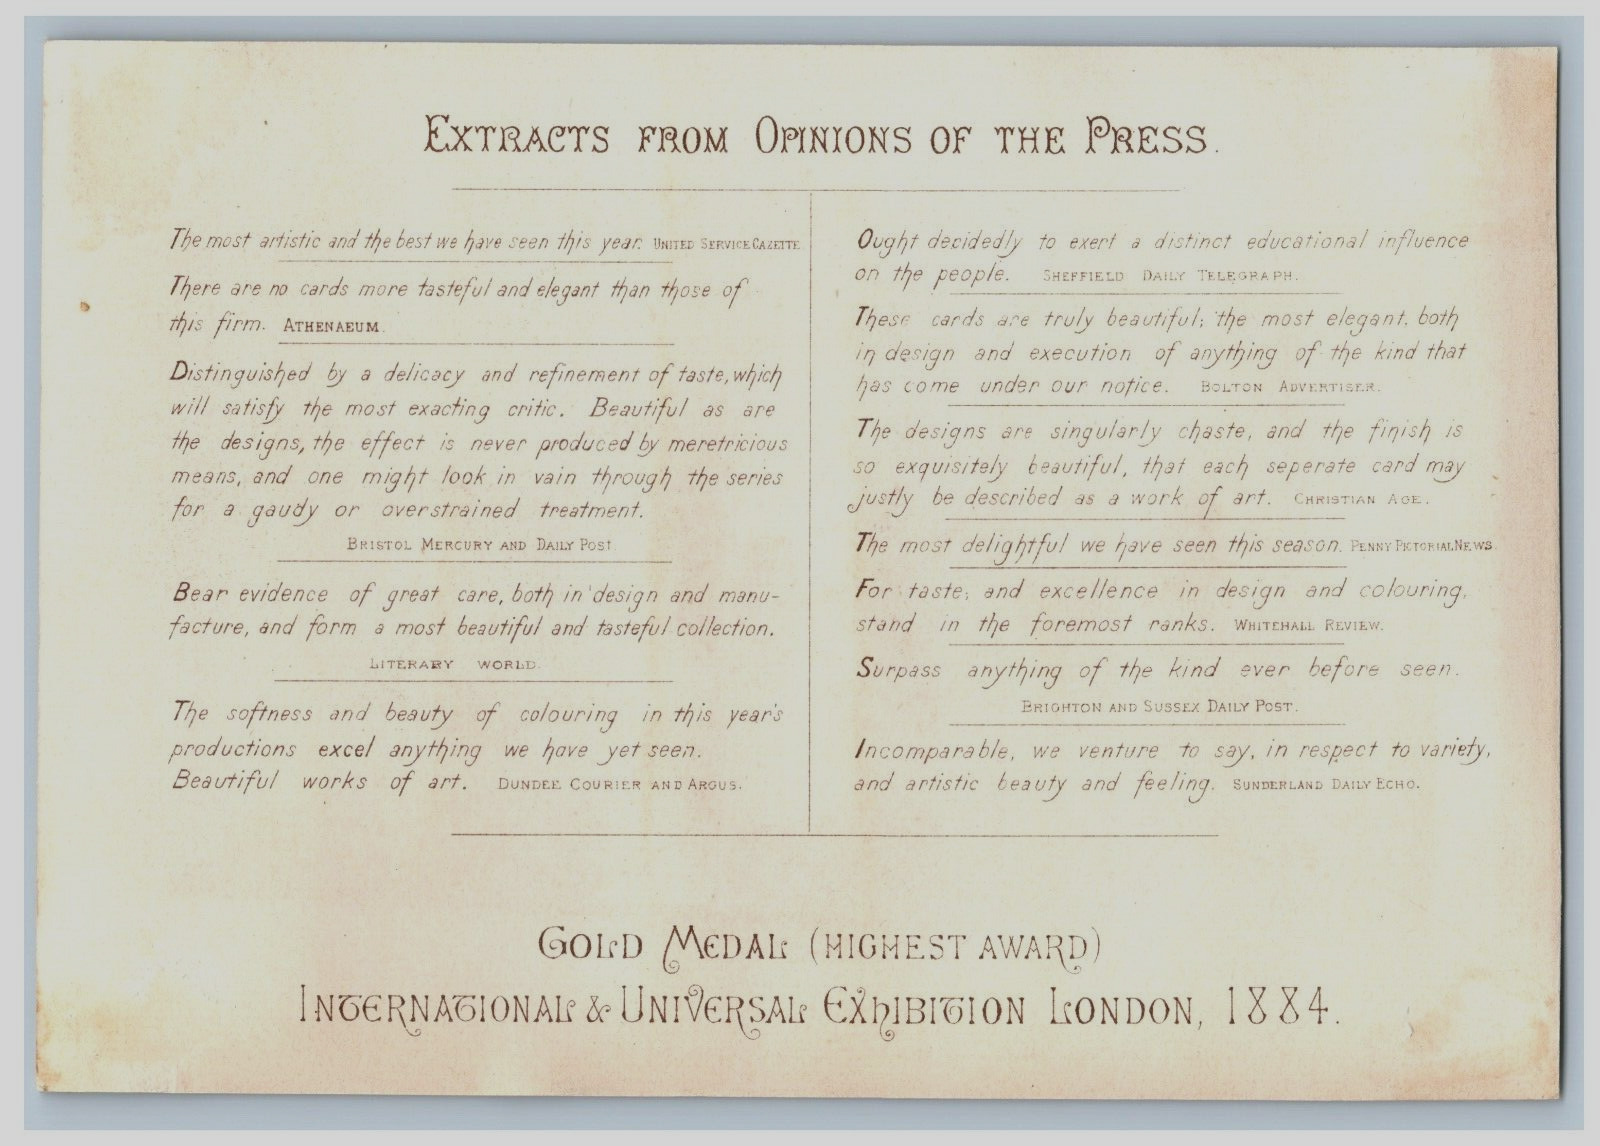 Extracts from Opinions of the Press.
The most artistic and the best we have seen this year. United Service Gazette
There are no cards more tasteful and elegant than those of
this firm. Athenaeum.
Distinguished by a delicacy and refinement of taste, which
will satisfy the most exacting critic. Beautiful as are
the designs, the effect is never produced by meretricious
means, and one might look in vain through the series
for a gaudy or overstrained treatment.
Bristol Mercury and Daily Post.
Bear evidence of great care, both in design and manu-
facture, and form a most beautiful and tasteful collection.
Literary World.
The softness and beauty of colouring in this year's
productions excel anything we have yet seen.
Beautiful works of art. Dundee Courier and Argus.
Ought decidedly to exert a distinct educational influence
on the people. Sheffield Daily Telegraph.
These cards are truly beautiful; the most elegant, both
in design and execution of anything of the kind that
has come under our notice. Bolton Advertiser.
The designs are singularly chaste, and the finish is
so exquisitely beautiful, that each seperate card may
justly be described as a work of art. Christian Age.
The most delightful we have seen this season. Penny Pictorial News.
For taste, and excellence in design and colouring,
stand in the foremost ranks. Whitehall Review.
Surpass anything of the kind ever before seen.
Brighton and Sussex Daily Post.
Incomparable, we venture to say, in respect to variety,
and artistic beauty and feeling. Sunderland Daily Echo.
Gold Medal (Highest Award)
International & Universal Exhibition London, 1884.